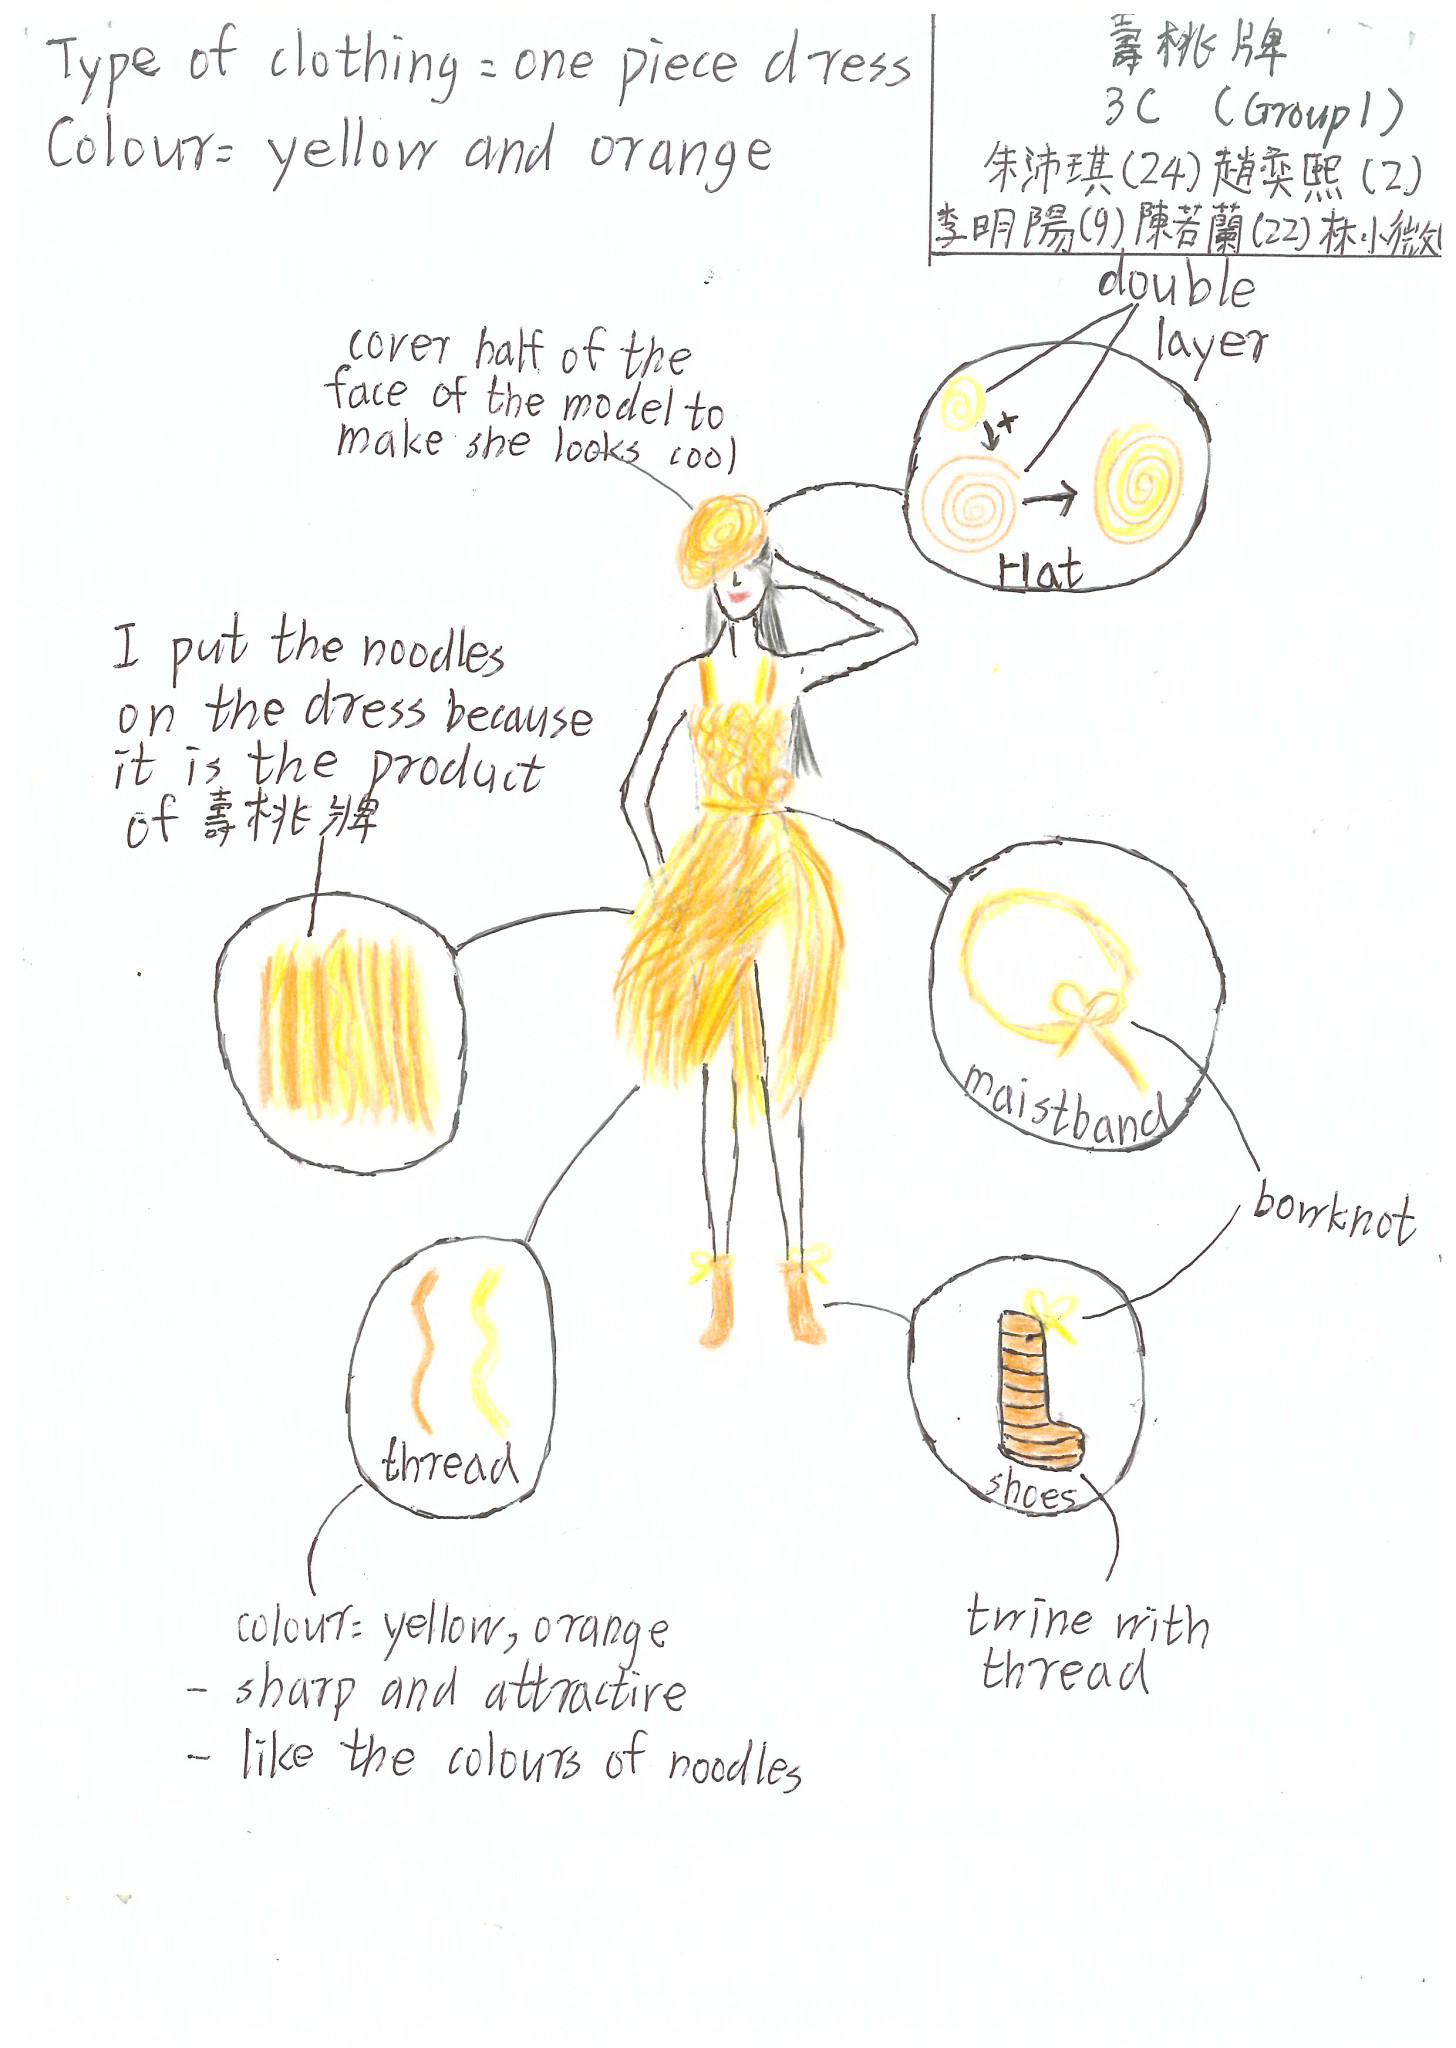 Type of clothing = one piece dress
Colour= yellow and orange
壽桃牌
3C (Group1)
朱沛琪(24)趙奕熙(2)
李明陽(9)陳若蘭(22)林小微
double
layer
cover half of the
face of the model to
make she looks cool
Hat
I put the noodles
on the dress because
it is the product
of 壽桃牌
maistband
bowknot
thread
shoes
colour= yellow, orange
- sharp and attractire
- like the colours of noodles
twine with
thread